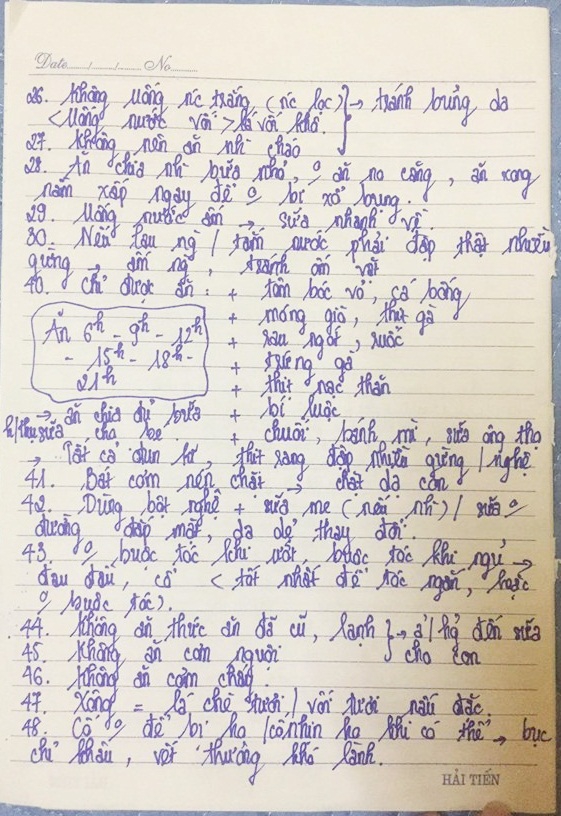 Date...../...../..... No.........
26. Không uống nc trắng (nc lọc) } → tránh bủng da
<uống nước vối> lá vối khô.
27. Không nên ăn nh cháo
28. Ăn chia nh bữa nhỏ, 0/ ăn no căng, ăn xong
nằm xấp ngay để 0/ bị xổ bụng.
29. Uống nước ấm → sữa nhanh về.
30. Nếu lau ng / tắm nước phải đập thật nhiều
gừng → ấm ng, tránh ốm vặt
40. Chỉ được ăn: + tôm bóc vỏ, cá bống
+ móng giò, thịt gà
Ăn 6h - 9h - 12h + rau ngót, ruốc
- 15h - 18h - + trứng gà
21h + thịt nạc thăn
→ ăn chia đủ bữa + bí luộc
h/thu sữa cho bé. + chuối, bánh mì, sữa ông thọ
→ Tất cả đun kĩ, thịt rang đập nhiều gừng / nghệ
41. Bát cơm nén chặt → chặt dạ con
42. Dùng bột nghệ + sữa mẹ (nếu nh) / sữa 0/
đường đắp mặt, da dẻ thay đổi.
43. 0/ buộc tóc khi ướt, buộc tóc khi ngủ →
đau đầu, cổ < tốt nhất để tóc ngắn, hoặc
0/ buộc tóc).
44. Không ăn thức ăn đã cũ, lạnh } → ả/hg đến sữa
45. Không ăn cơm nguội cho con
46. Không ăn cơm cháy.
47. Xông = lá chè tươi / vối tươi nấu đặc.
48. Cố 0/ để bị ho / cố nhịn ho khi có thể → bục
chỉ khâu, vết thương khó lành.
HẢI TIẾN